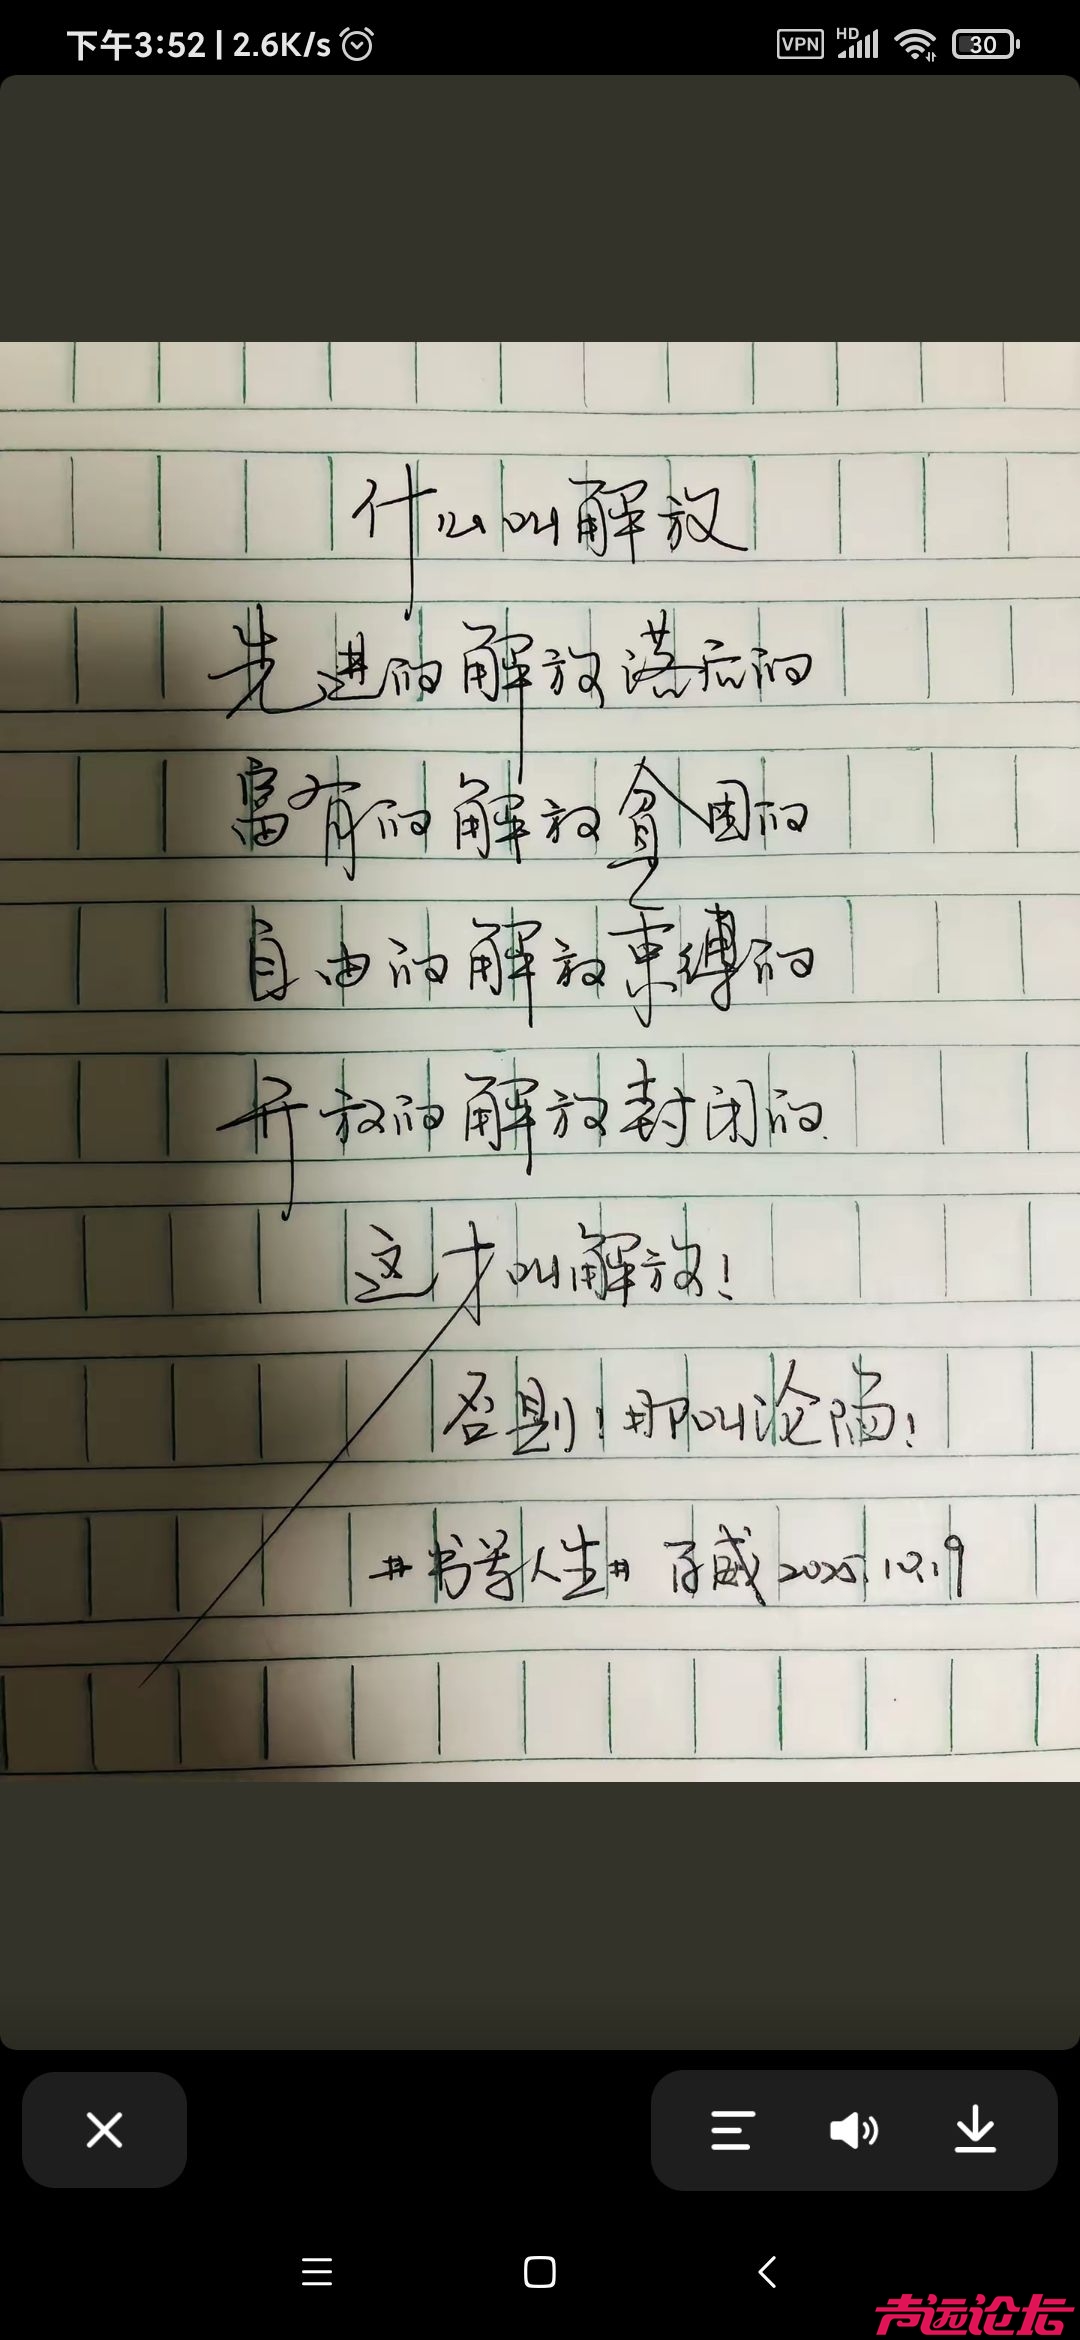 下午3:52 | 2.6K/s
VPN HD 30
什么叫解放
先进的解放落后的
富有的解放贫困的
自由的解放束缚的
开放的解放封闭的
这才叫解放!
否则!那叫沦陷!
#书写人生# 百威 2025.10.19
声远论坛